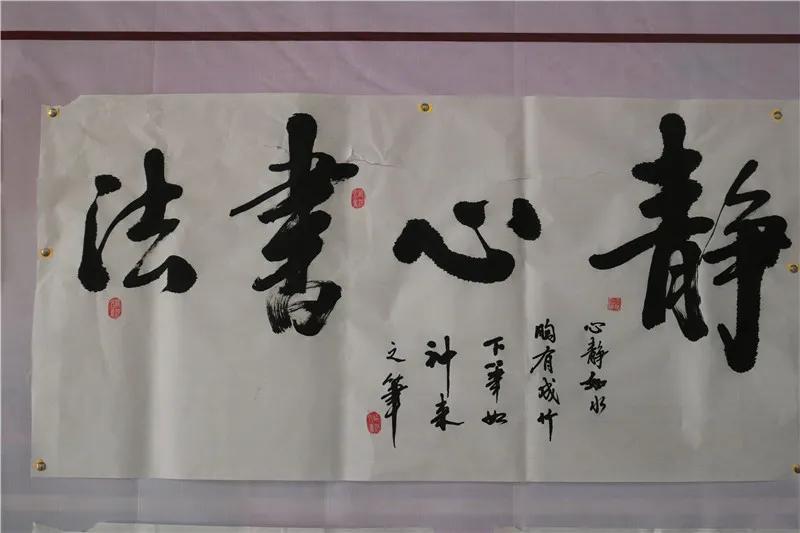 静心書法
心静如水
胸有成竹
下筆如
神来
之筆